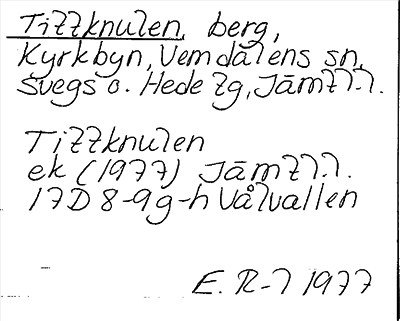 Tittknulen, berg,
Kyrkbyn, Vemdalens sn,
Svegs o. Hede tg, Jämtl.l.
Tittknulen
ek (1977) Jämtl.l.
17D 8-9g-h Vålvallen
E. R-l 1977